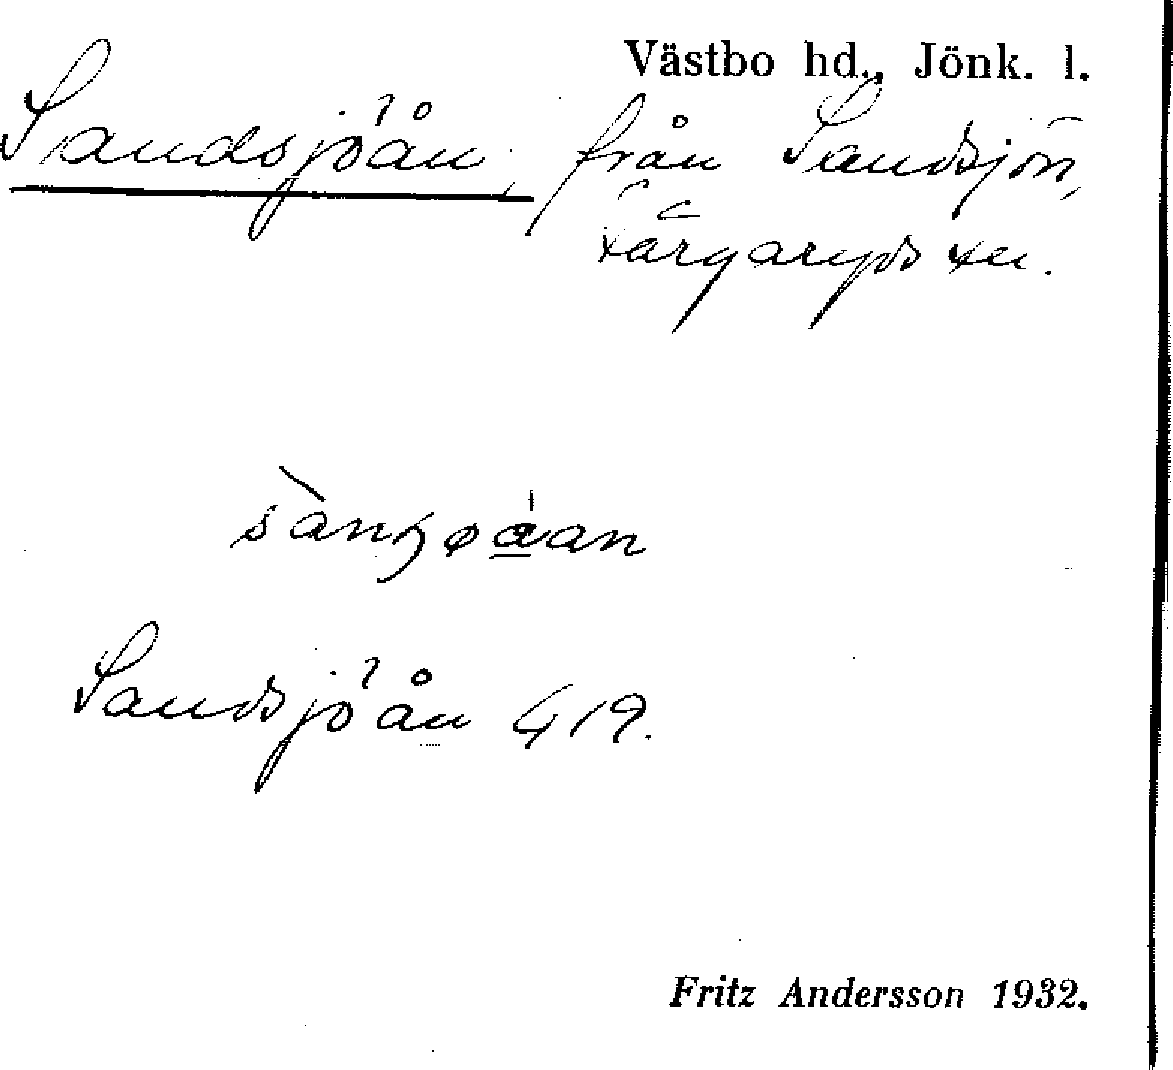 Västbo hd., Jönk. l.
Sandsjöån, från Sandsjön,
Kärgaryds sn.
Sandsjöån 419.
Fritz Andersson 1932.